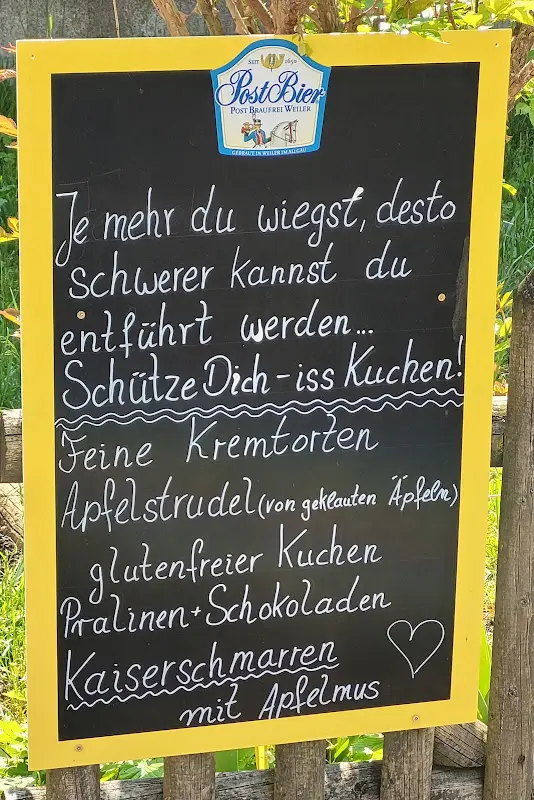 SEIT 1650
PostBier
POST BRAUEREI WEILER
GEBRAUT IN WEILER IM ALLGÄU
Je mehr du wiegst, desto
schwerer kannst du
entführt werden...
Schütze Dich - iss Kuchen!
Feine Kremtorten
Apfelstrudel (von geklauten Äpfeln)
glutenfreier Kuchen
Pralinen + Schokoladen
Kaiserschmarren
mit Apfelmus